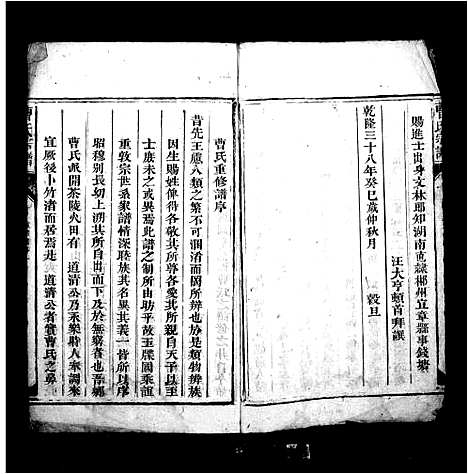 賜進士出身文林郎知湖南直隸郴州宜章縣事錢塘
汪大亨頓首拜撰
乾隆三十八年癸巳歲仲秋月
穀旦
曹氏重修譜序
昔先王慮人類之繁不可溷淆而罔所辨也於是類物辨族
因生賜姓俾得各敬其所尊各愛其所親自天子以至
士庶未之或異焉此譜之制所由助乎故玉牒國乘誼
重敦宗世系家譜情深聯族其名異其義一皆所以序
昭穆別長幼上溯其所自出而下及於無窮者也吾鄉
曹氏派開茶陵火田有 道清公乃永樂時人來調來
宜厥後卜竹渚而居焉是 道清公者實曹氏之鼻
曹氏宗譜
曹氏宗譜